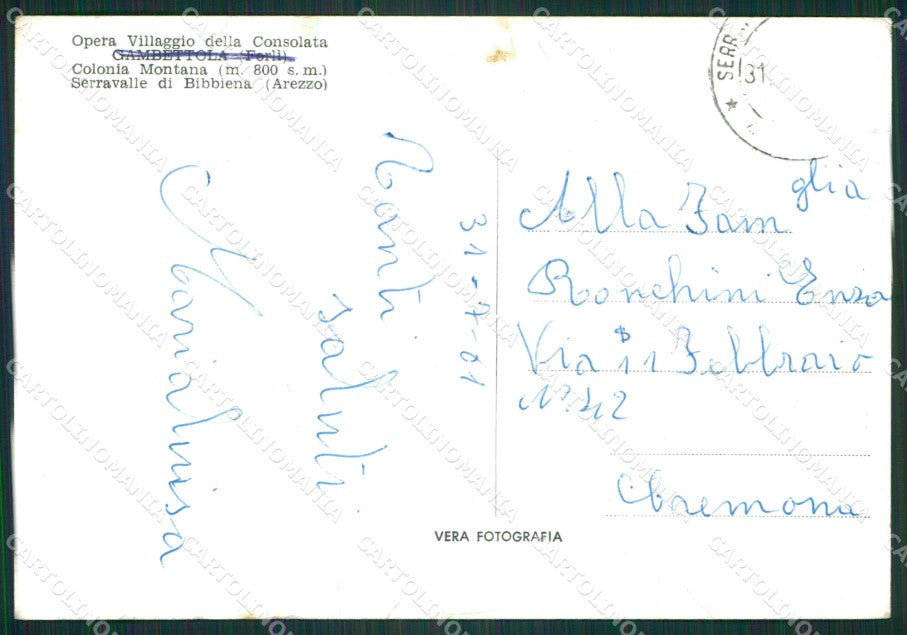 Opera Villaggio della Consolata
GAMBETTOLA (Forlì)
Colonia Montana (m. 800 s. m.)
Serravalle di Bibbiena (Arezzo)
SERR
31
31-7-61
Tanti
saluti
Marialuisa
Alla Famiglia
Ronchini Enzo
Via 11 Febbraio
N° 42
Cremona
VERA FOTOGRAFIA
CARTOLINOMANIA